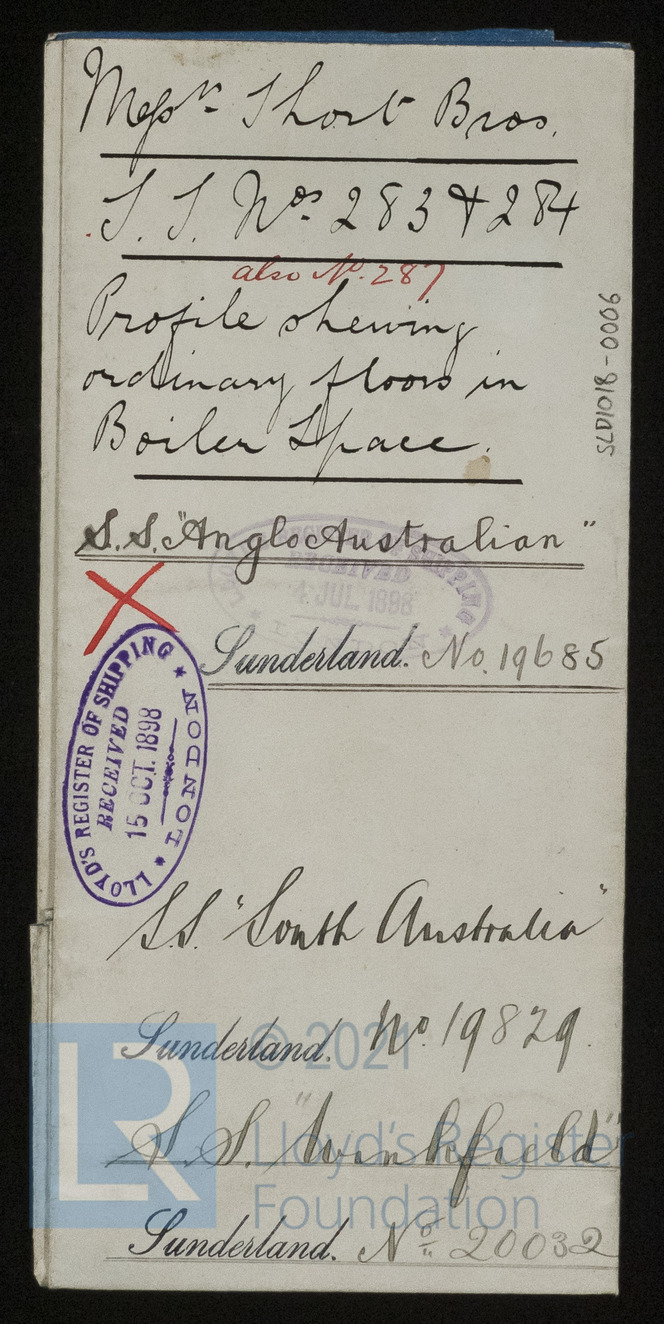 Messrs Short Bros.
S.S. Nos 283 & 284
also No. 287
Profile shewing
ordinary floors in
Boiler Space.
STD1018-0006
S.S. "Anglo Australian"
RECEIVED
4 JUL 1898
Sunderland. No. 19685
LLOYD'S REGISTER OF SHIPPING
RECEIVED
15 OCT. 1898
* LONDON *
S.S. "South Australia"
Sunderland. No. 19829.
S.S. "Winkfield"
Sunderland. No. 20032
LR
© 2021
Lloyd's Register
Foundation